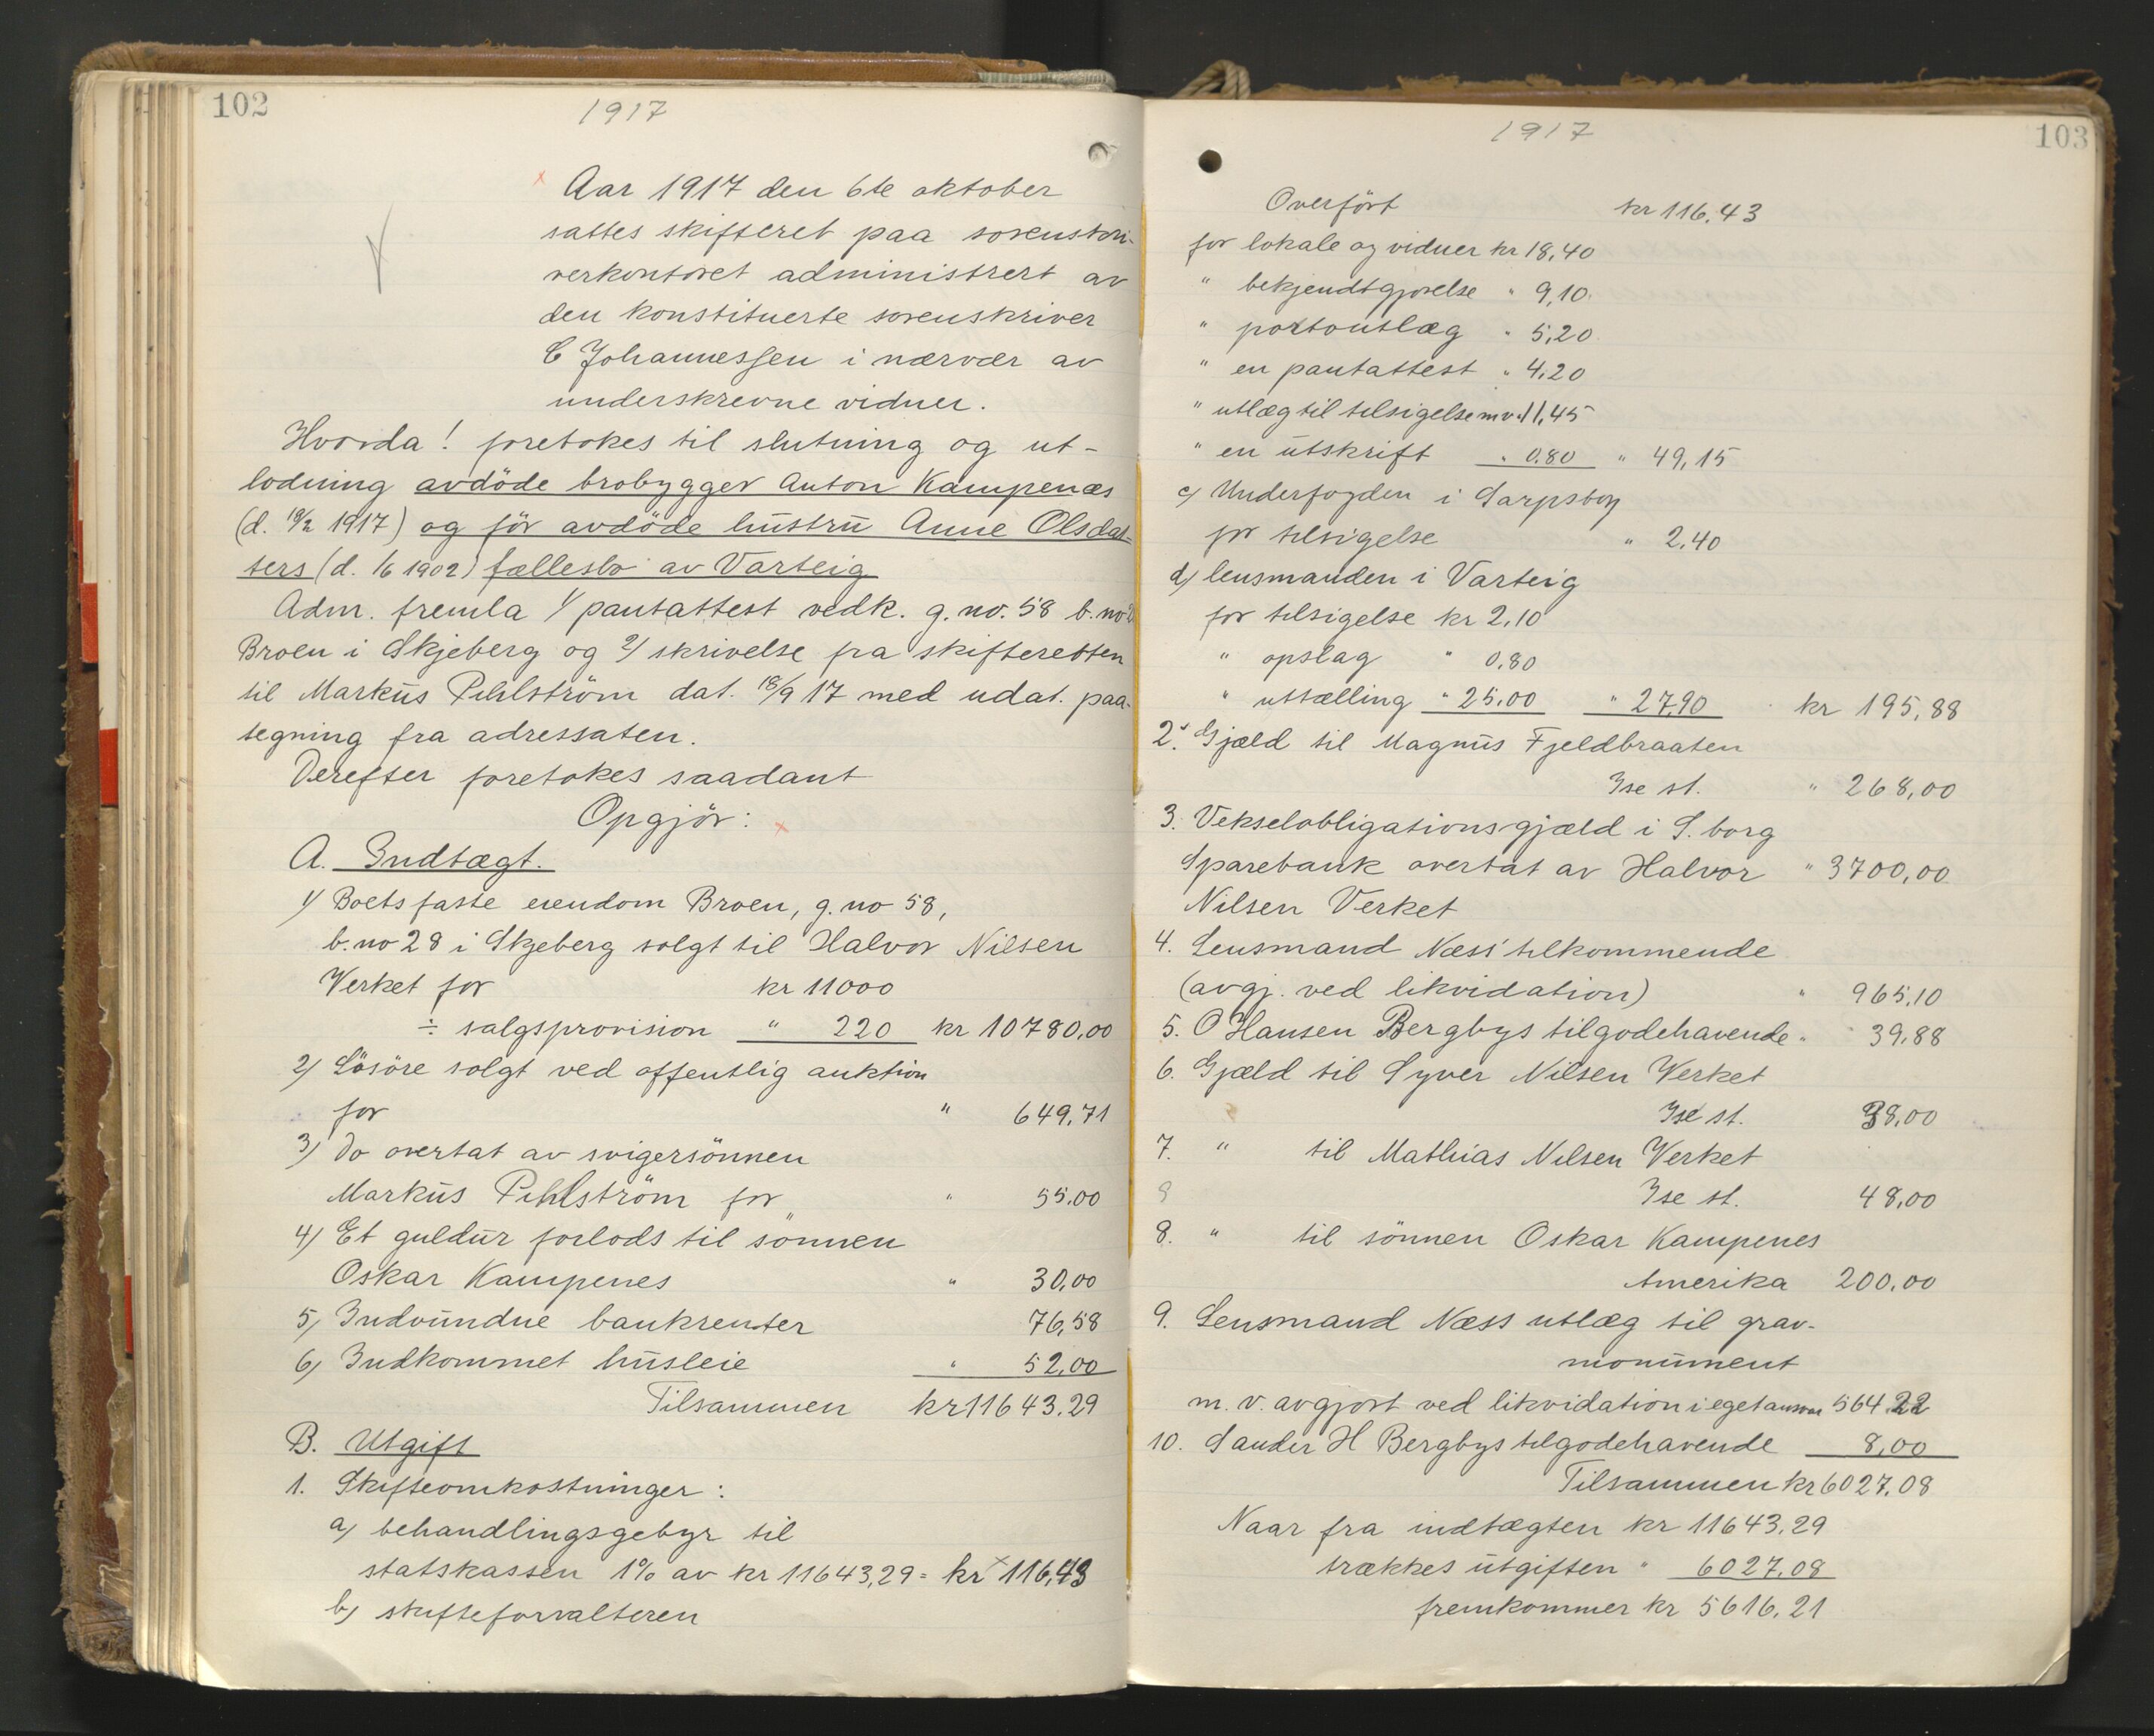 102
1917
Aar 1917 den 6te oktober
sattes skifteret paa sorenskri-
verkontoret administrert av
den konstituerte sorenskriver
C Johannessen i nærvær av
underskrevne vidner.
Hvorda! foretokes til slutning og ut-
lodning avdöde brobygger Anton Kampenæs
(d. 18/2 1917) og för avdöde hustru Anne Olsdat-
ters (d. 1/6 1902) fællesbo av Varteig
Adm. fremla 1/ pantattest vedk. g. no. 58 b. no
Broen i Skjeberg og 2/ skrivelse fra skifteretten
til Markus Pihlström dat. 18/9 17 med udat. paa-
tegning fra adressaten.
Derefter foretokes saadant
Opgjör:
A. Indtægt.
1) Boets faste eiendom Broen, g. no 58,
b. no 28 i Skjeberg solgt til Halvor Nilsen
Verket for kr 11000
÷ salgsprovision " 220 kr 10780,00
2) Lösöre solgt ved offentlig auktion
for " 649,71
3) Do overtat av svigersönnen
Markus Pihlström for " 55.00
4) Et guldur forlods til sönnen
Oskar Kampenes " 30,00
5) Indvundne bankrenter 76,58
6) Indkommet husleie " 52,00
Tilsammen kr 11643.29
B. Utgift
1. Skifteomkostninger:
a) behandlingsgebyr til
statskassen 1% av kr 11643,29 = kr 116,43
b) skifteforvalteren
103
1917
Overfört kr 116.43
for lokale og vidner kr 18,40
" bekjendtgjörelse " 9,10
" portoutlæg " 5,20
" en pantattest " 4.20
" utlæg til tilsigelse m v. 11,45
" en utskrift " 0.80 " 49,15
c) Underfogden i Sarpsborg
for tilsigelse " 2.40
d) lensmanden i Varteig
for tilsigelse kr 2.10
" opslag " 0.80
" uttælling " 25.00 " 27.90 kr 195,88
2. Gjæld til Magnus Fjeldbraaten
Ise st. " 268,00
3. Vekselobligationsgjæld i S. borg
Sparebank overtat av Halvor " 3700,00
Nilsen Verket
4. Lensmand Næss' tilkommende
(avgj. ved likvidation) " 965,10
5. O Hansen Bergbys tilgodehavende " 39.88
6. Gjæld til Syver Nilsen Verket
Ise st. 38,00
7. " til Mathias Nilsen Verket
Ise st. 48,00
8. " til sönnen Oskar Kampenes
Amerika 200,00
9. Lensmand Næss utlæg til grav-
monument
m. v. avgjort ved likvidation i eget ansvar 564.22
10. Sander H Bergbys tilgodehavende 8,00
Tilsammen kr 6027.08
Naar fra indtægten kr 11643.29
trækkes utgiften " 6027.08
fremkommer kr 5616.21